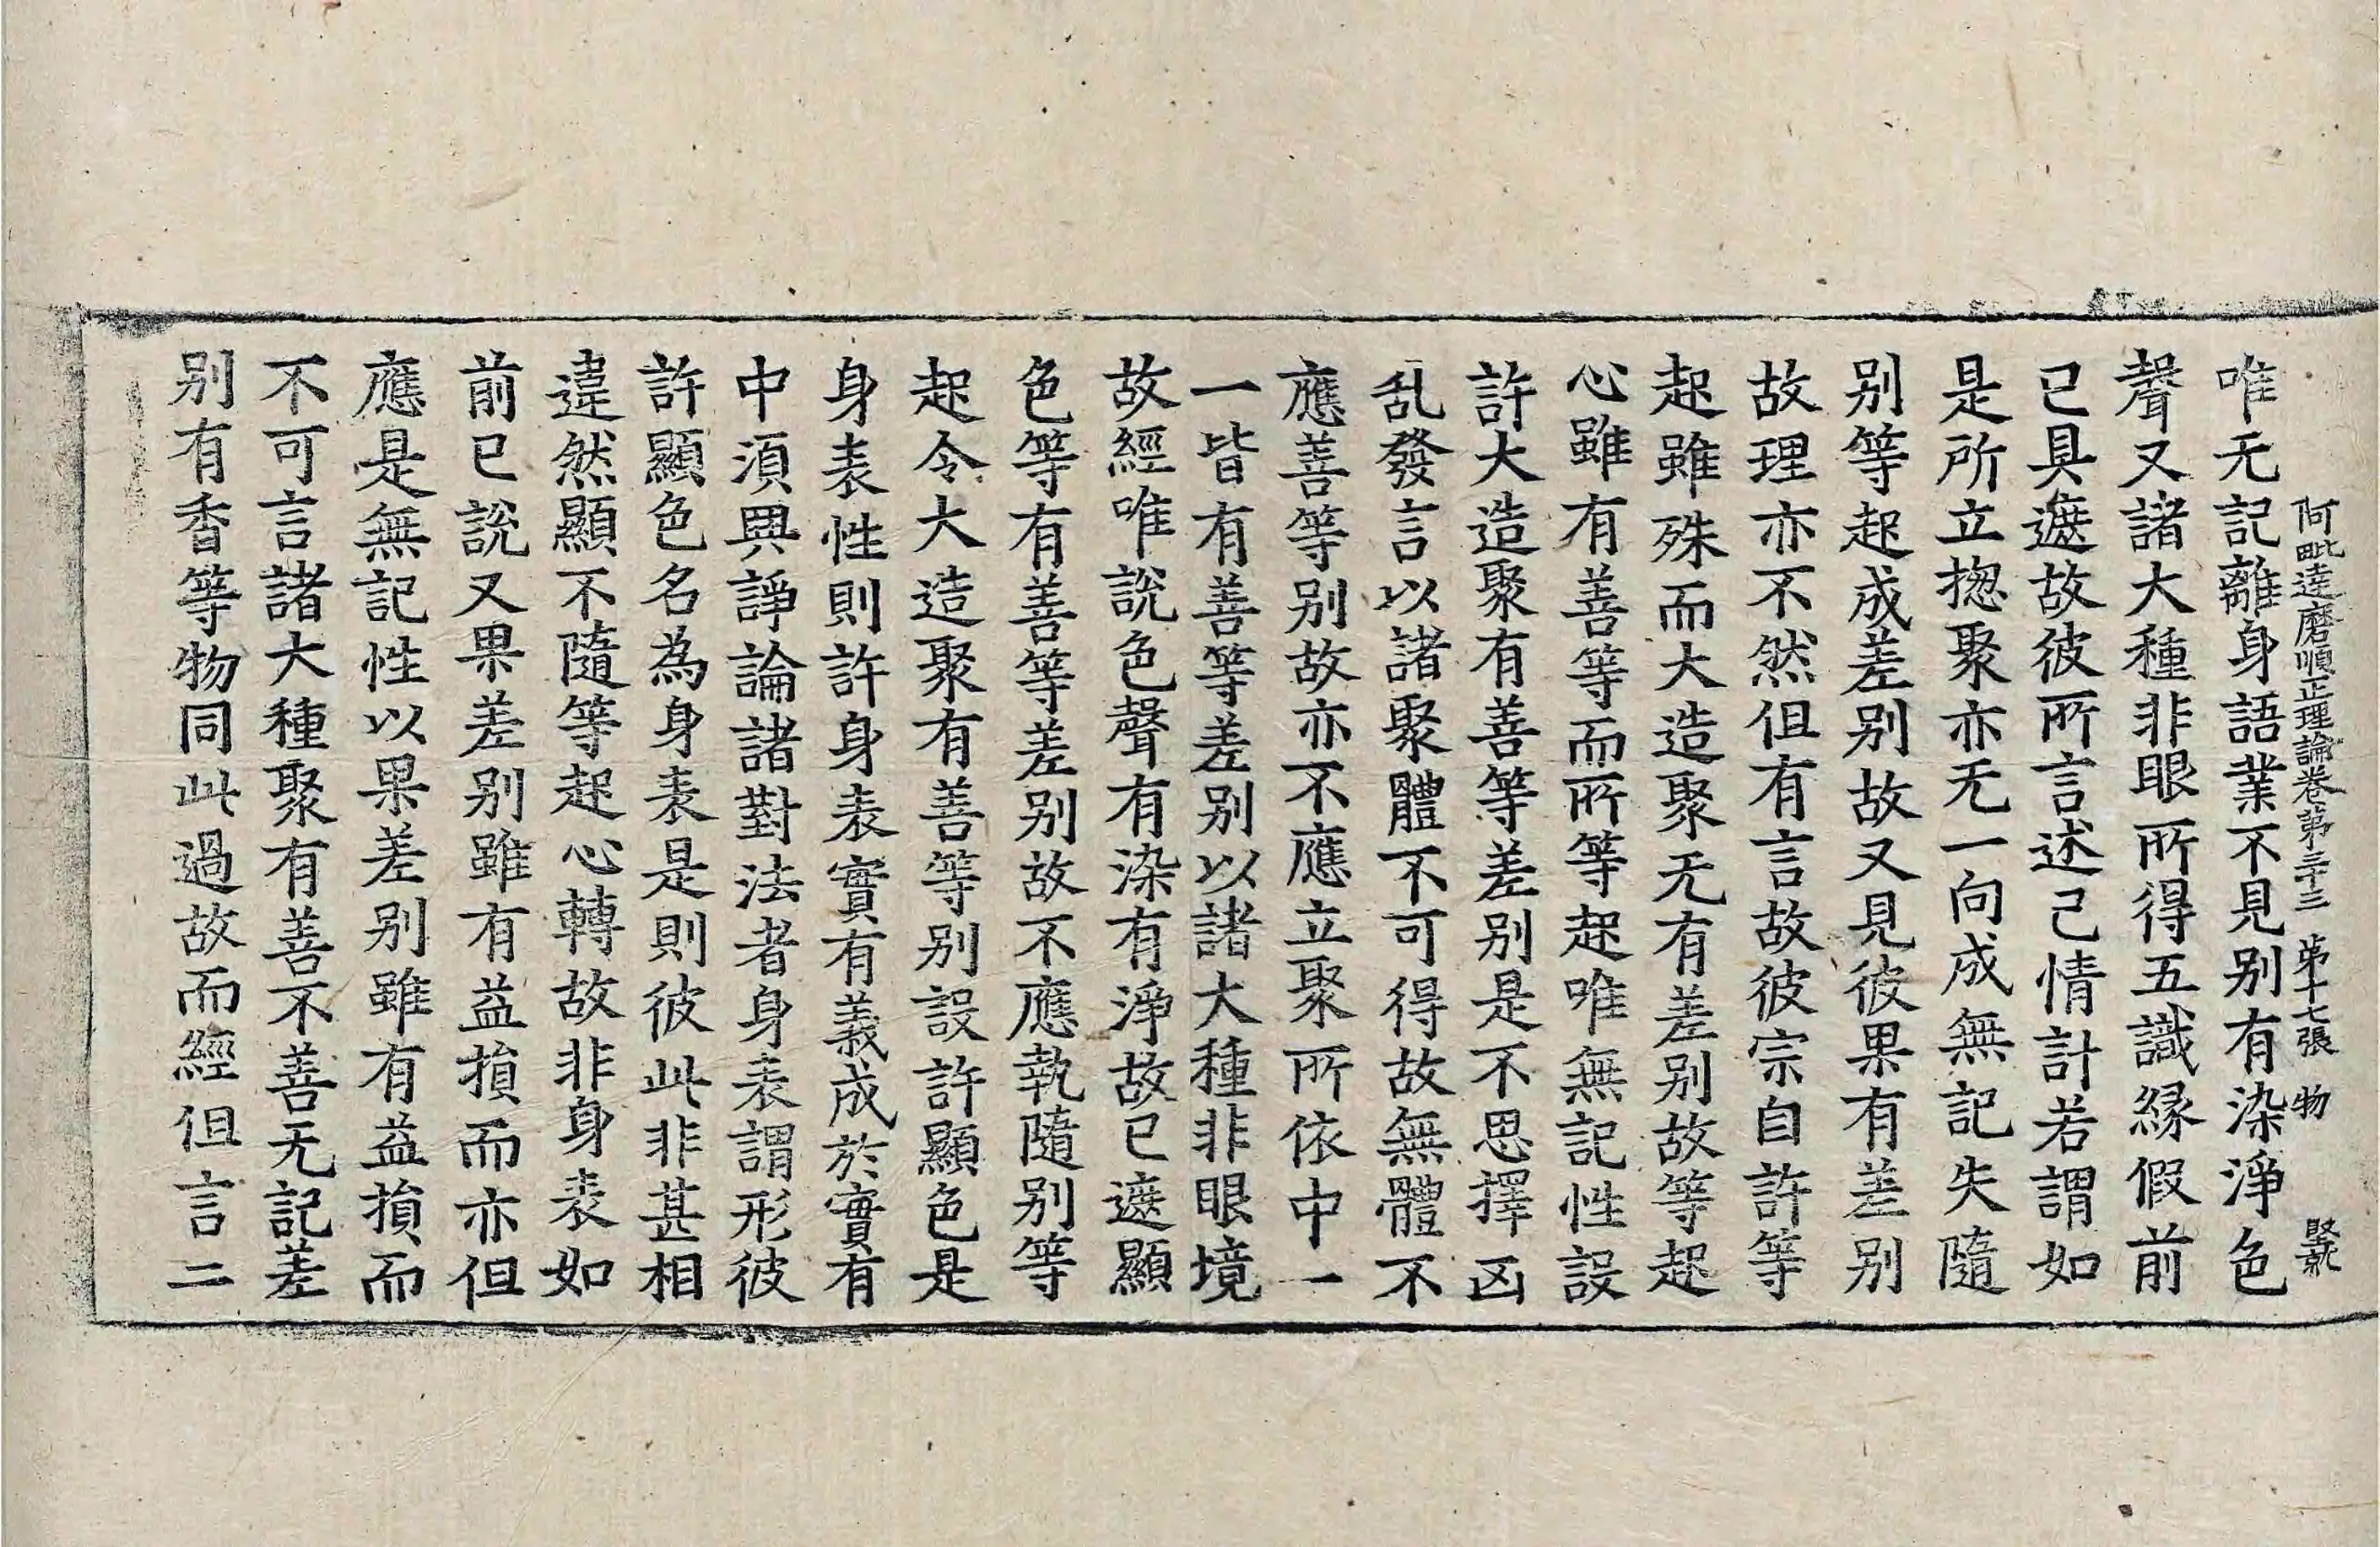 阿毗達磨順正理論卷第三十三 第十七張 物
唯无記離身語業不見別有染淨色
聲又諸大種非眼所得五識緣假前
已具遮故彼所言述己情計若謂如
是所立揔聚亦无一向成無記失隨
別等起成差別故又見彼果有差別
故理亦不然但有言故彼宗自許等
起雖殊而大造聚无有差別故等起
心雖有善等而所等起唯無記性設
許大造聚有善等差別是不思擇凶
乱發言以諸聚體不可得故無體不
應善等別故亦不應立聚所依中一
一皆有善等差別以諸大種非眼境
故經唯說色聲有染有淨故已遮顯
色等有善等差別故不應執隨別等
起令大造聚有善等別設許顯色是
身表性則許身表實有義成於實有
中須興諍論諸對法者身表謂形彼
許顯色名為身表是則彼此非甚相
違然顯不隨等起心轉故非身表如
前已說又果差別雖有益損而亦但
應是無記性以果差別雖有益損而
不可言諸大種聚有善不善无記差
別有香等物同此過故而經但言二